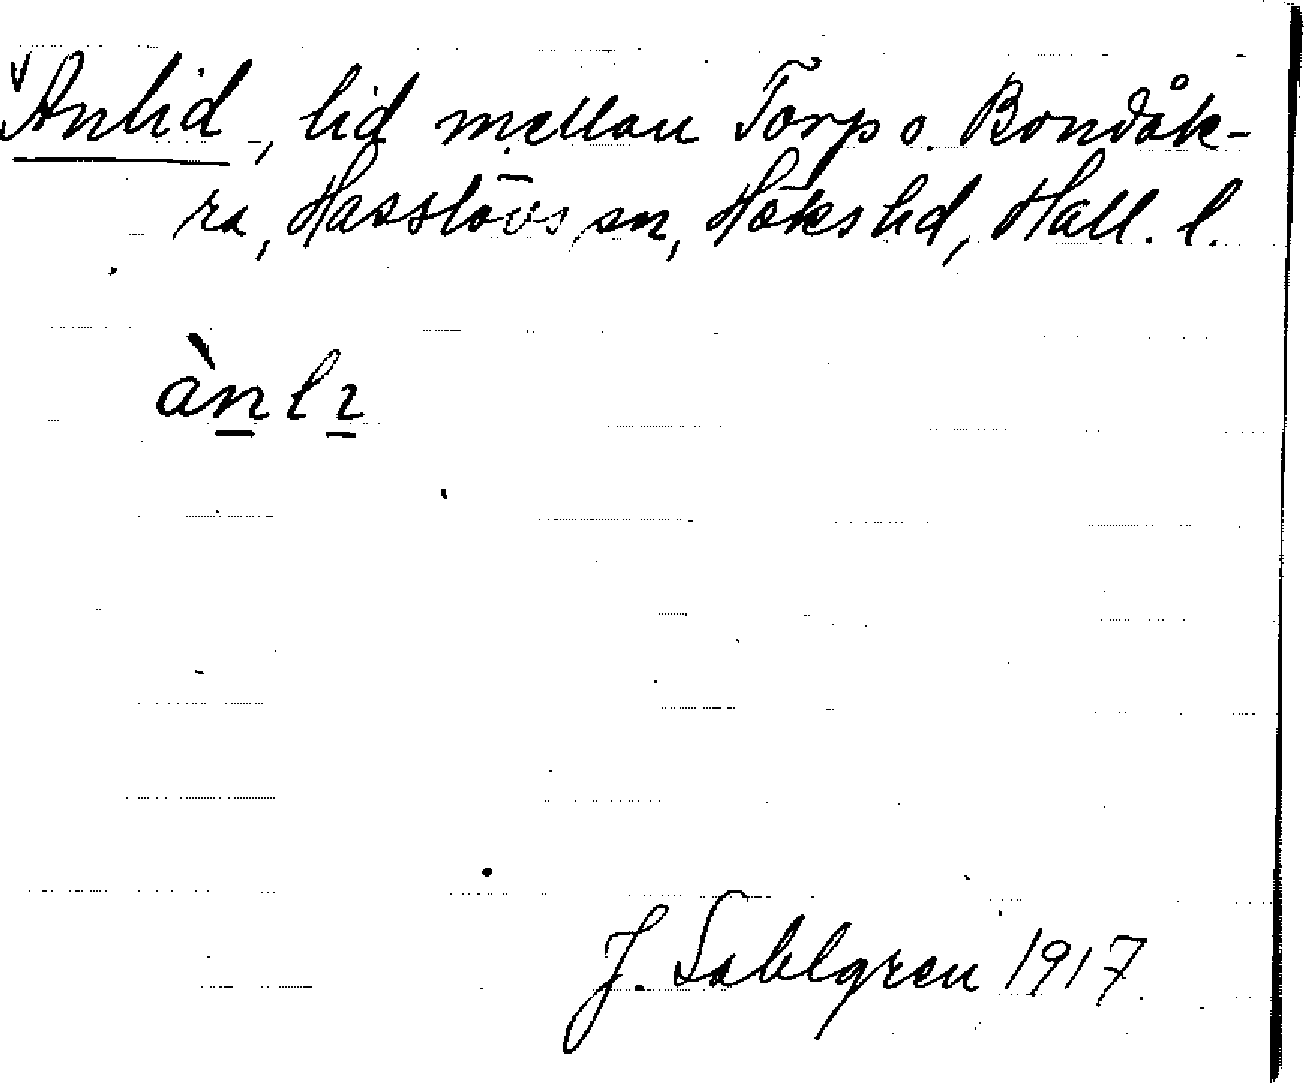 Anlid, lid mellan Torp o. Bondåk-
ra, Hasslövs sn, Höks hd, Hall. l.
ànlɩ
J. Sahlgren 1917.